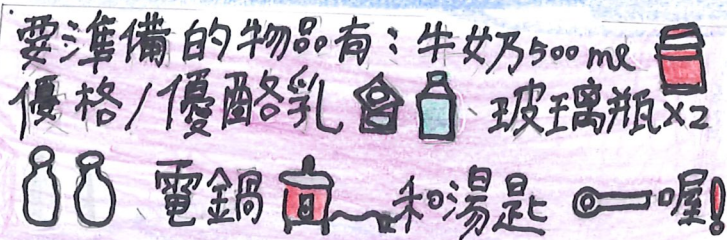 要準備的物品有：牛奶500ml
優格/優酪乳、玻璃瓶x2
、電鍋和湯匙喔!